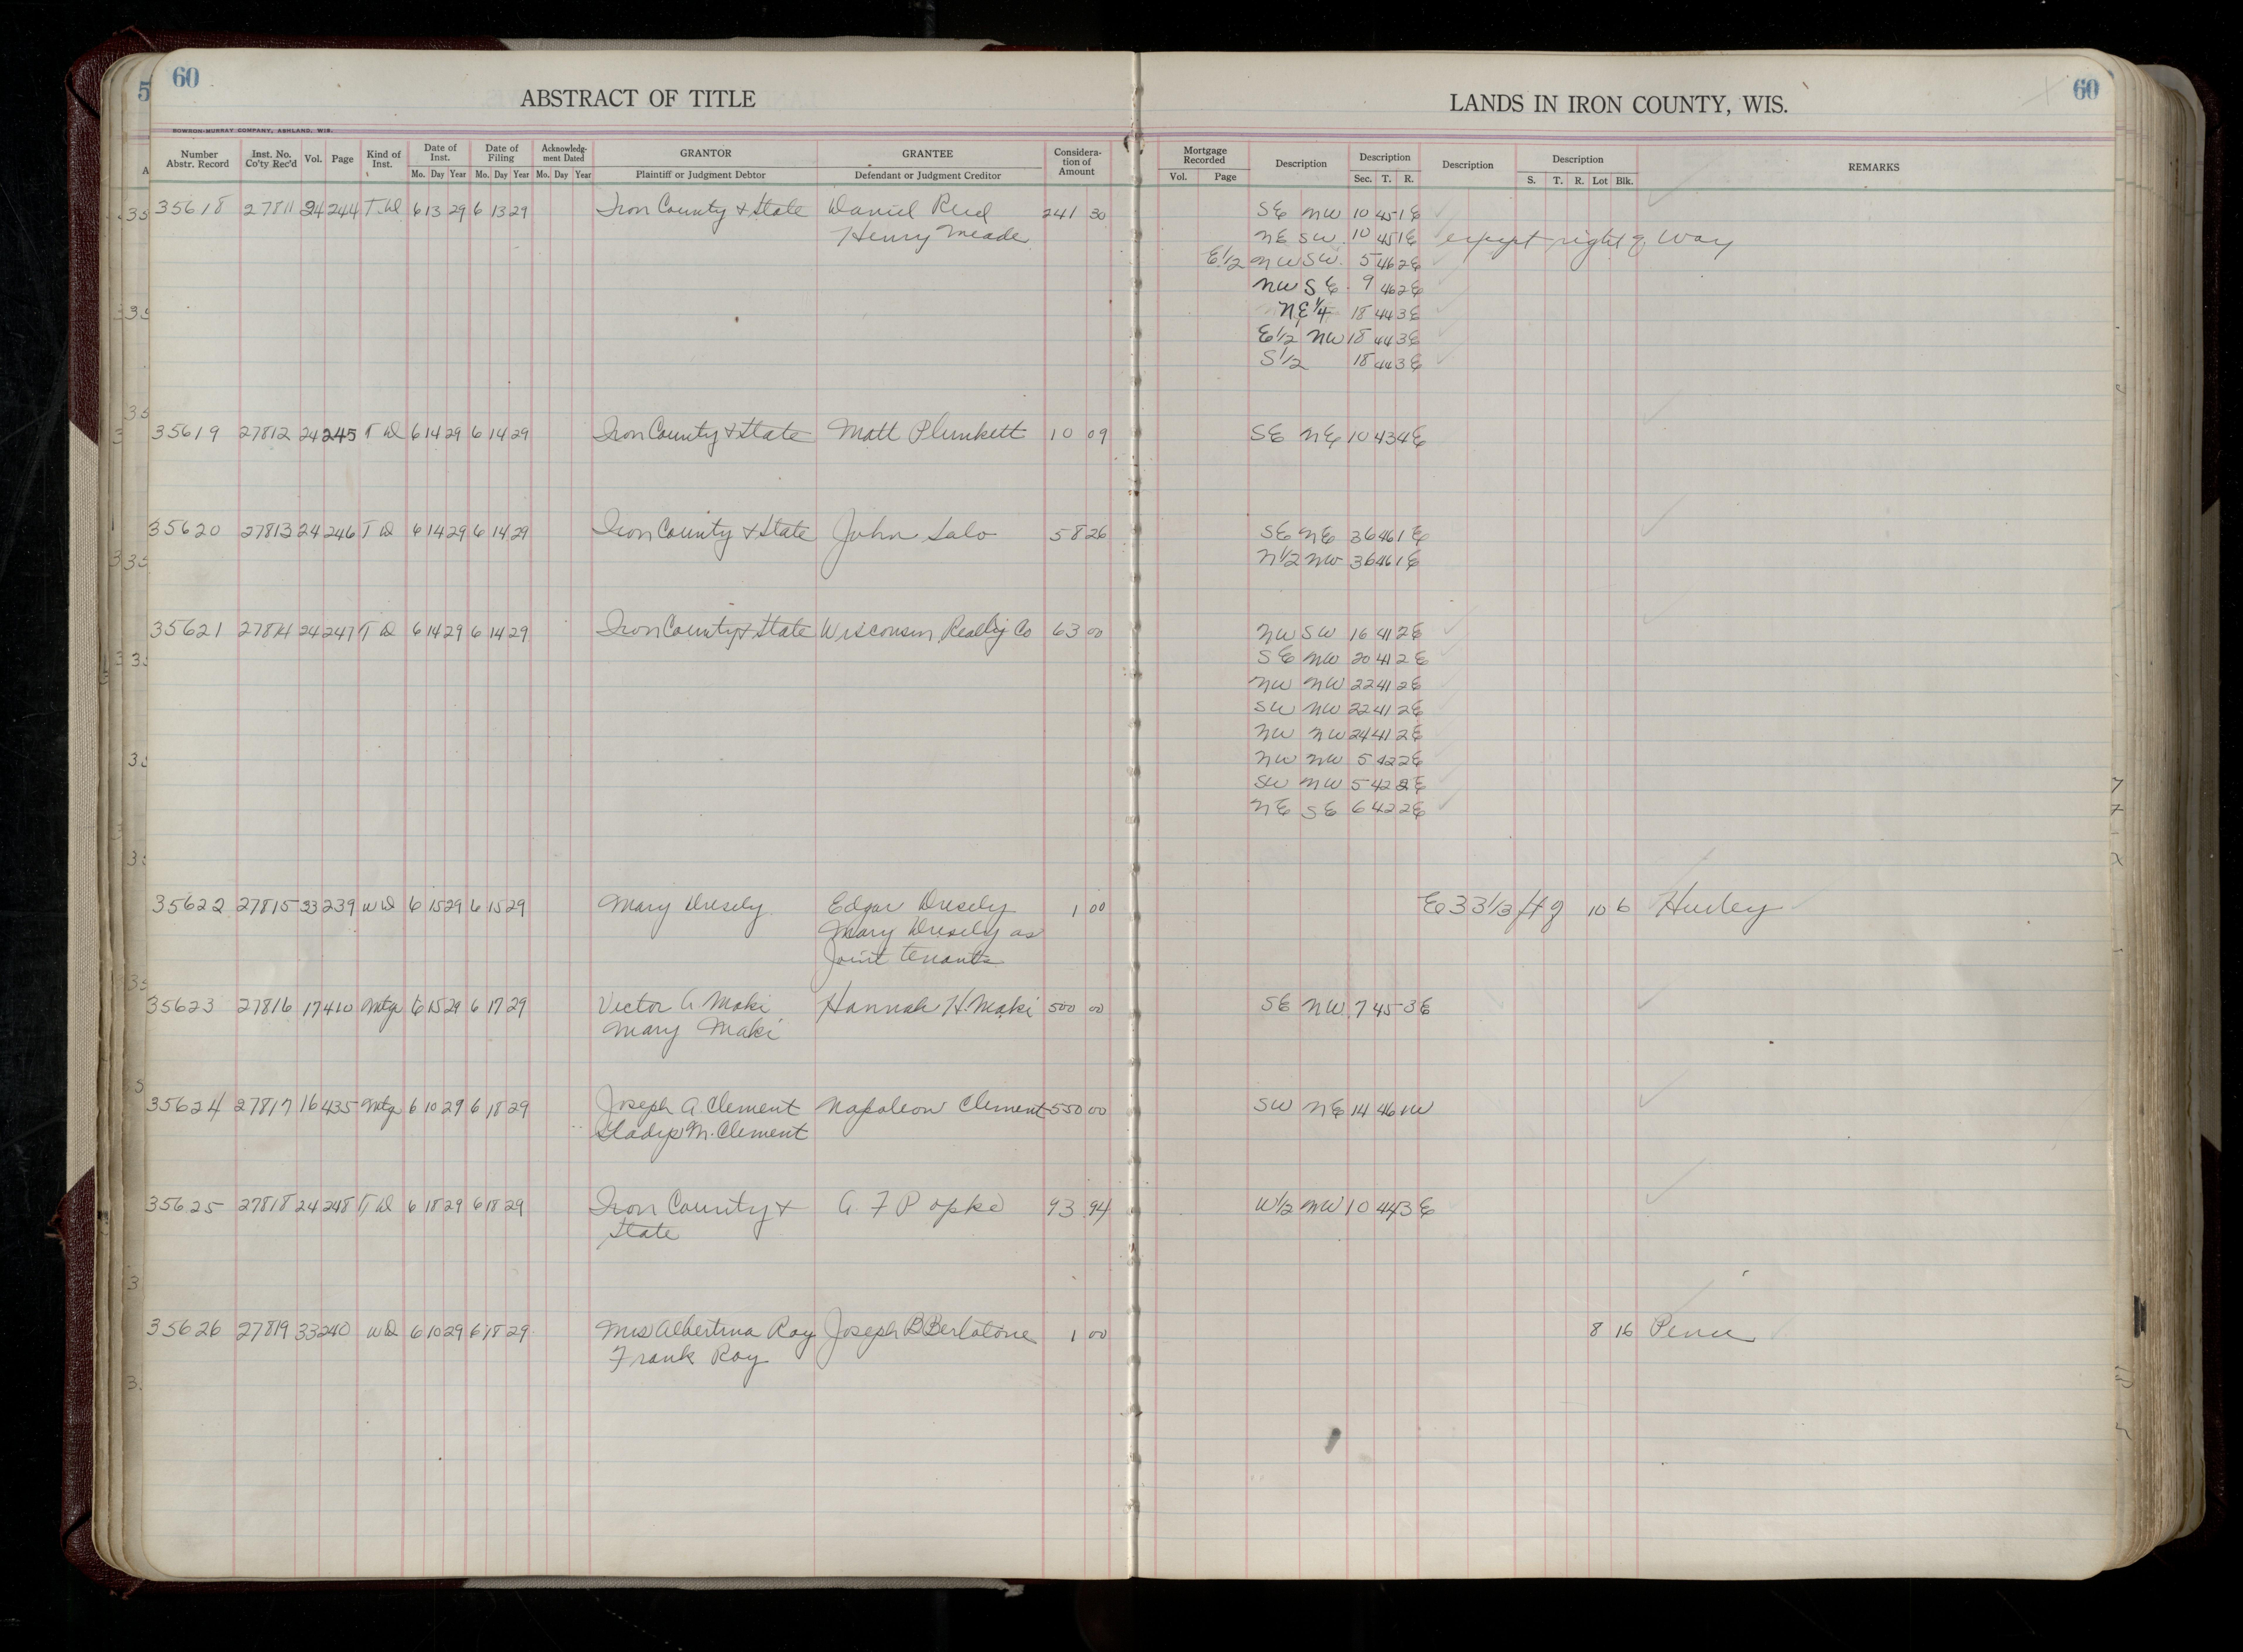 60
ABSTRACT OF TITLE
LANDS IN IRON COUNTY, WIS.
60
BOWRON-MURRAY COMPANY, ASHLAND, WIS.
Number Abstr. Record Inst. No. Co'ty Rec'd Vol. Page Kind of Inst. Date of Inst. Mo. Day Year Date of Filing Mo. Day Year Acknowledg-ment Dated Mo. Day Year GRANTOR Plaintiff or Judgment Debtor GRANTEE Defendant or Judgment Creditor Considera-tion of Amount Mortgage Recorded Vol. Page Description Description Sec. T. R. Description Description S. T. R. Lot Blk. REMARKS
35618 27811 24 244 T.D. 6 13 29 6 13 29 Iron County & State Daniel Reid 241 30 SE NW 10 45 1E
Henry Meade NE SW 10 45 1E except right of Way
E1/2 NW SW 5 46 2E
NW SE 9 46 2E
NE 1/4 18 44 3E
E1/2 NW 18 44 3E
S1/2 18 44 3E
35619 27812 24 245 T D 6 14 29 6 14 29 Iron County & State Matt Plunkett 10 09 SE NE 10 43 4E
35620 27813 24 246 T D 6 14 29 6 14 29 Iron County & State John Salo 58 26 SE NE 36 46 1E
N1/2 NW 36 46 1E
35621 27814 24 247 T D 6 14 29 6 14 29 Iron County & State Wisconsin Realty Co 63 00 NW SW 16 41 2E
SE NW 20 41 2E
NW NW 22 41 2E
SW NW 22 41 2E
NW NW 24 41 2E
NW NW 5 42 2E
SW NW 5 42 2E
NE SE 6 42 2E
35622 27815 33 239 W D 6 15 29 6 15 29 Mary Dresely Edgar Dresely 1 00 E 33 1/3 ft of 10 6 Hurley
Mary Dresely as
Joint tenants
35623 27816 17 410 Mtg 6 15 29 6 17 29 Victor A Maki Hannah H. Maki 500 00 SE NW 7 45 3E
Mary Maki
35624 27817 16 435 Mtg 6 10 29 6 18 29 Joseph A. Clement Napoleon Clement 550 00 SW NE 14 46 1W
Gladys M. Clement
35625 27818 24 248 T D 6 18 29 6 18 29 Iron County & A. F Popke 93 94 W1/2 NW 10 44 3E
State
35626 27819 33 240 W D 6 10 29 6 18 29 Mrs Albertina Roy Joseph B Bertolone 1 00 8 16 Pence
Frank Roy